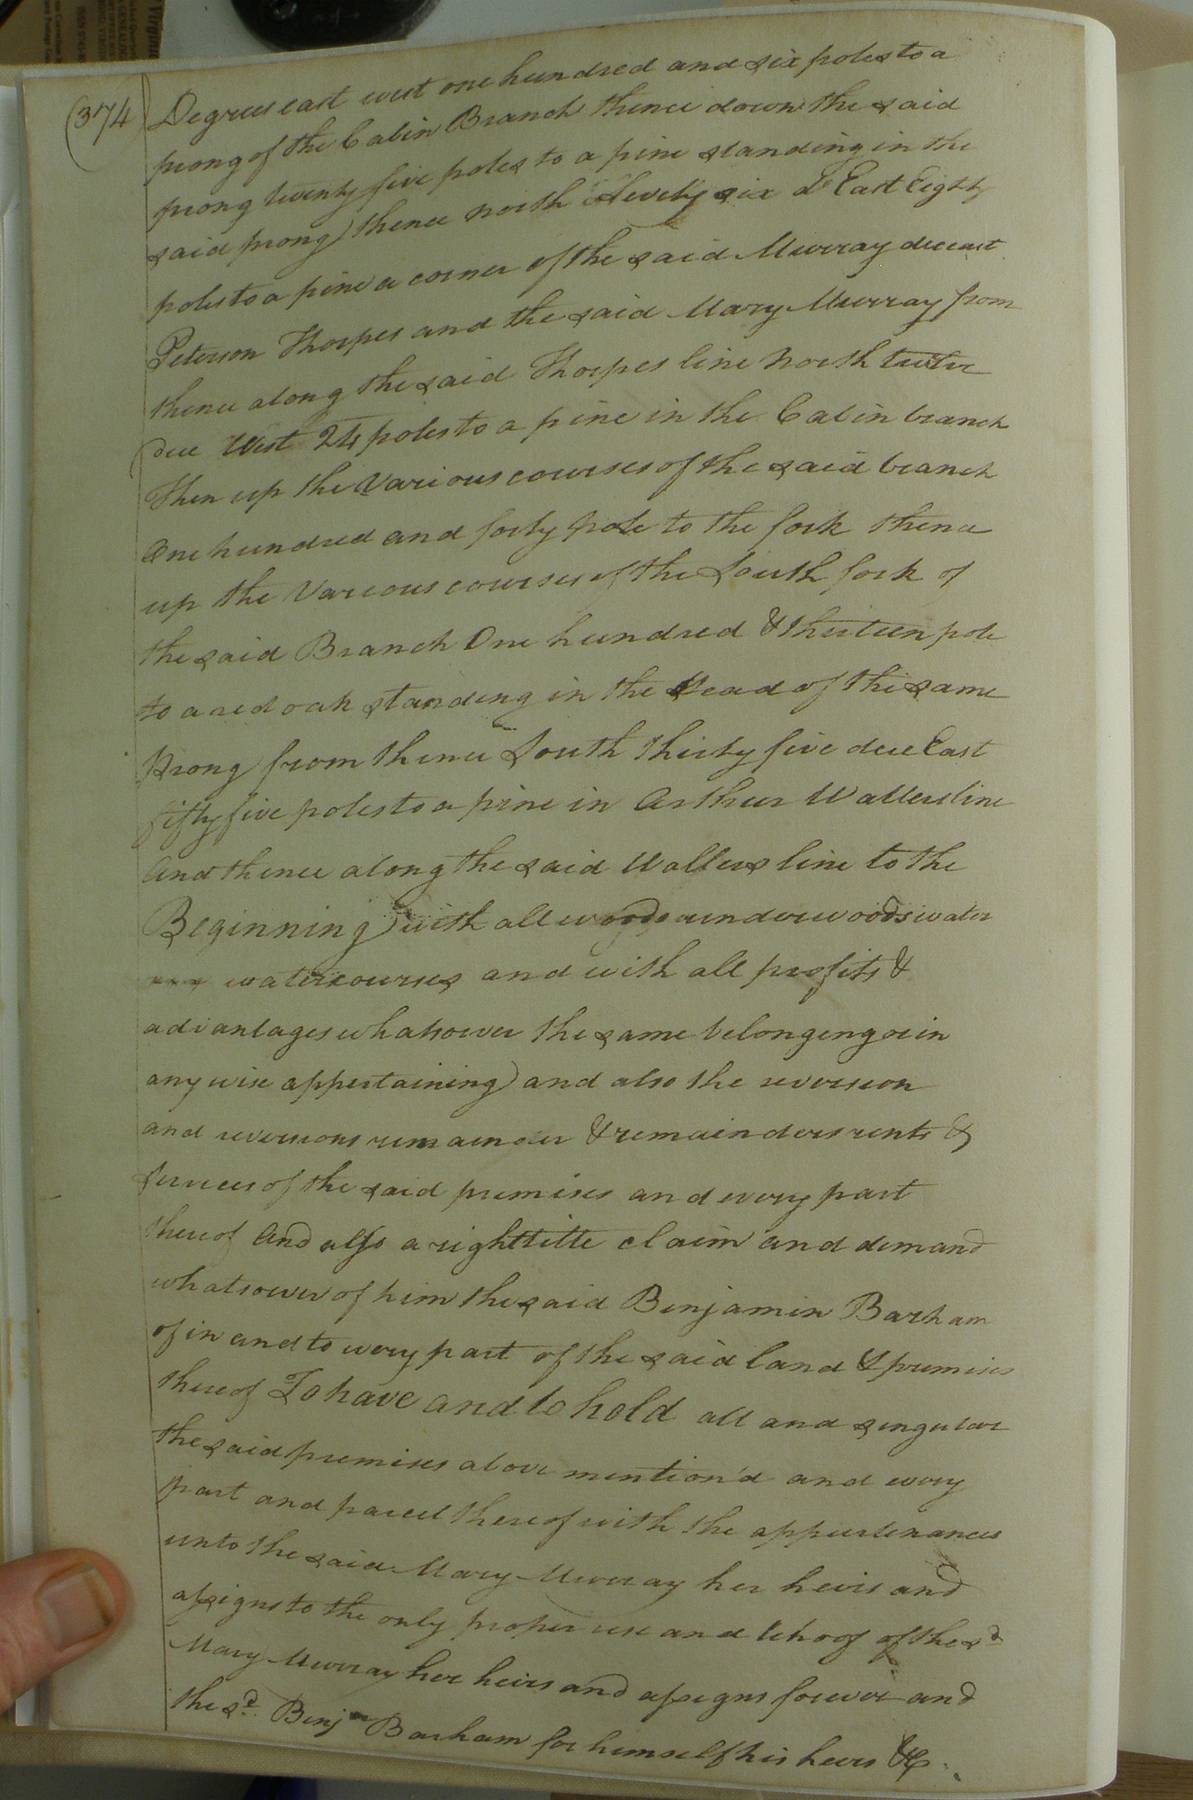 (374)
Degrees east west one hundred and six poles to a
prong of the Cabin Branch thence down the said
prong twenty five poles to a pine standing in the
said prong) thence north six d East Eighty
poles to a pine a corner of the said Murray deceast
Peterson Thorpes and the said Mary Murray from
thence along the said Thorpes line north twelve
Due West 24 poles to a pine in the Cabin branch
Then up the Various courses of the said branch
One hundred and forty pole to the fork thence
up the Various courses of the South fork of
the said Branch One hundred & thirteen pole
to a red oak standing in the Head of the same
Prong from thence South thirty five dee East
fifty five poles to a pine in Arthur Wallers line
And thence along the said Wallers line to the
Beginning) with all woods underwoods water
watercourses and with all profits &
advantages whatsoever the same belonging or in
any wise appertaining) and also the reversion
and reversions remainder & remainders rents &
services of the said premises and every part
thereof And also a right title claim and demand
whatsoever of him the said Benjamin Barham
of in and to every part of the said land & premises
thereof To have and to hold all and singular
the said premises above mention'd and every
part and parcel thereof with the appurtenances
unto the said Mary Murray her heirs and
assigns to the only proper use and behoof of the sd
Mary Murray her heirs and assigns forever and
the sd. Benjn Barham for himself his heirs &c.